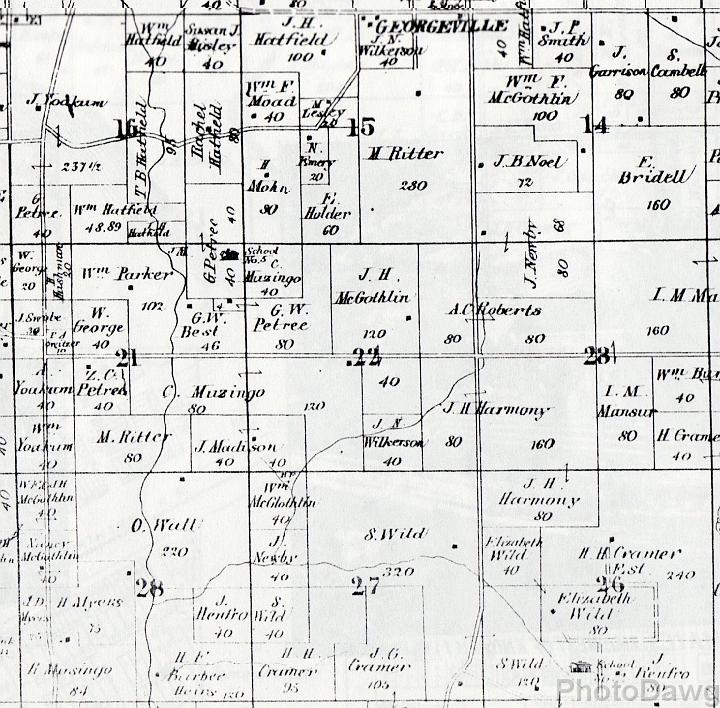 Wm
Hatfield
40
Susan J
Mosley
40
J. H.
Hatfield
100
GEORGEVILLE
J.N.
Wilkerson
40
40
Wm Hatfi
J. P.
Smith
40
J.
Garrison
80
S.
Cambell
80
J. Yoakum
16
237 1/2
T. B. Hatfield
95
Rachel
Hatfield
80
Wm F.
Moad
40
M
Lesley
15
N.
Emery
20
M Ritter
280
Wm F.
McGothlin
100
14
J. B. Noel
72
F.
Bridell
160
G
Petree
40
Wm Hatfield
48.89
Hatfield
J.M.
G. Petree
40
40
H
Mohn
80
F.
Holder
60
J. Newby
68
80
W.
George
20
H
Hishman
20
Wm Parker
102
School
No. 5
C.
Muzingo
40
J. H.
McGothlin
120
A.C. Roberts
80
80
I. M Ma
160
J. Swobe
W.
George
40
G.W.
Best
46
G. W.
Petree
80
21
22
23
Yoakum
40
Z. C.
Petree
40
C. Muzingo
80
120
40
J. H Harmony
80
160
I. M.
Mansur
80
Wm Bur
40
H Crame
40
Wm
Yoakum
40
M. Ritter
80
J. Madison
40
40
J N
Wilkerson
40
40
40
W F & J H
McGothlin
40
O. Wall
220
Wm
McGlothlin
40
S. Wild
320
J. H.
Harmony
80
Nancy
McGothlin
40
J.
Newby
40
Elizabeth
Wild
40
H. H. Cramer
Est.
240
28
27
26
J. D.
Myers
H Myers
75
J.
Renfro
40
S.
Wild
40
Elizabeth
Wild
80
R Musingo
84
H F
Barbee
Heirs 120
H. H.
Cramer
95
J. G.
Cramer
105
S. Wild
120
School
J.
Renfro
80
PhotoDawg